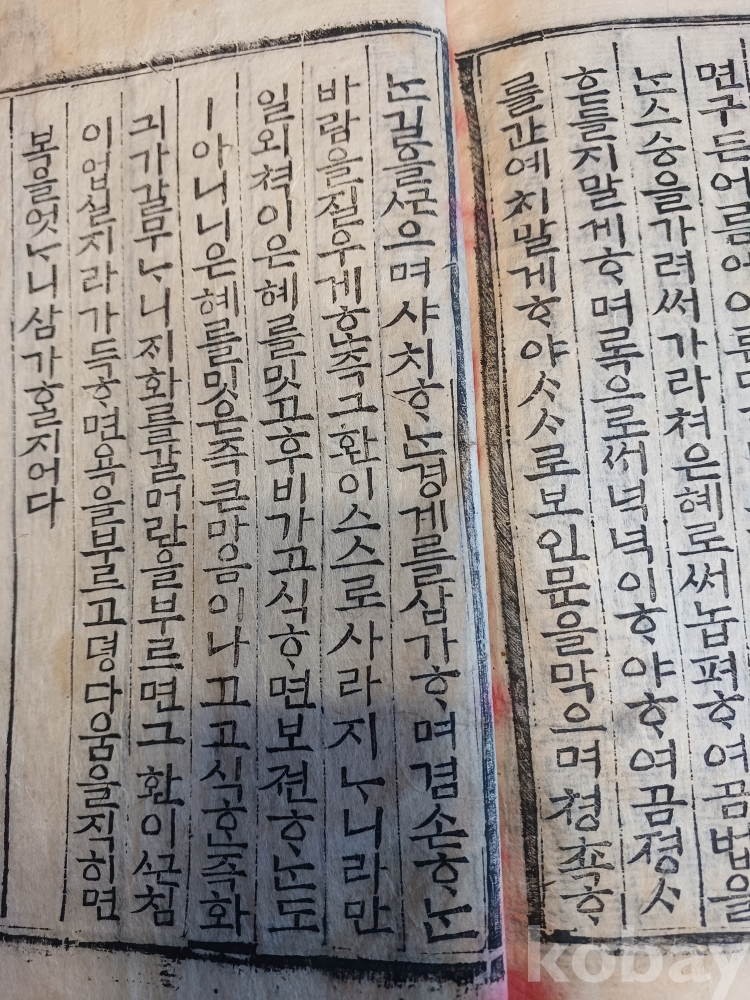 면구든어름
ᄂᆞᆫ스승을가려써가라쳐은혜로써놉펴ᄒᆞ여곰법을
흔들지말게ᄒᆞ며록으로써넉넉이ᄒᆞ야ᄒᆞ여곰졍ᄉᆞ
를간예치말게ᄒᆞ야ᄉᆞᄉᆞ로보인문을막으며쳥쵹ᄒᆞ
ᄂᆞᆫ길을ᄭᅳᆫ으며샤치ᄒᆞᄂᆞᆫ경계를삼가ᄒᆞ며겸손ᄒᆞᄂᆞᆫ
바람을질우게ᄒᆞᆫ즉그환이스스로사라지ᄂᆞ니라만
일외쳑이은혜를밋고후비가고식ᄒᆞ면보젼ᄒᆞᄂᆞᆫ도
ㅣ아니니은혜를밋은즉큰마음이나고고식ᄒᆞᆫ즉화
긔가갈무ᄂᆞ니지화를갈머란을부르면그환이ᄭᅳᆫ침
이업실지라가득ᄒᆞ면욕을부르고평마음을직히면
복을엇ᄂᆞ니삼가ᄒᆞᆯ지어다
kobay